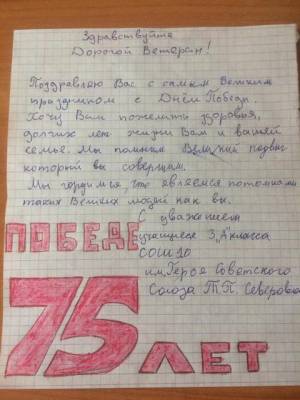 Здравствуйте
Дорогой Ветеран!
Поздравляю Вас с самым Великим
праздником с Днём Победы.
Хочу Вам пожелать здоровья,
долгих лет жизни Вам и вашей
семье. Мы помним Великий подвиг
который вы совершили.
Мы гордимся, что являемся потомками
таких Великих людей как вы.
С уважением
учащиеся 3 "А" класса
СОШ 10
им. Героя Советского
Союза Т.П. Северова
ПОБЕДЕ
75
ЛЕТ